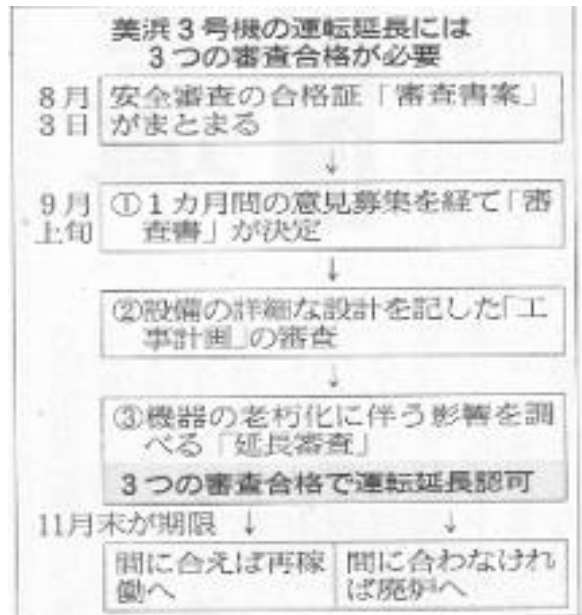 美浜3号機の運転延長には
3つの審査合格が必要
8月
3日
安全審査の合格証「審査書案」
がまとまる
↓
9月
上旬
①1カ月間の意見募集を経て「審
査書」が決定
↓
②設備の詳細な設計を記した「工
事計画」の審査
↓
③機器の老朽化に伴う影響を調
べる「延長審査」
3つの審査合格で運転延長認可
11月末が期限 ↓ ↓
間に合えば再稼
働へ
間に合わなけれ
ば廃炉へ